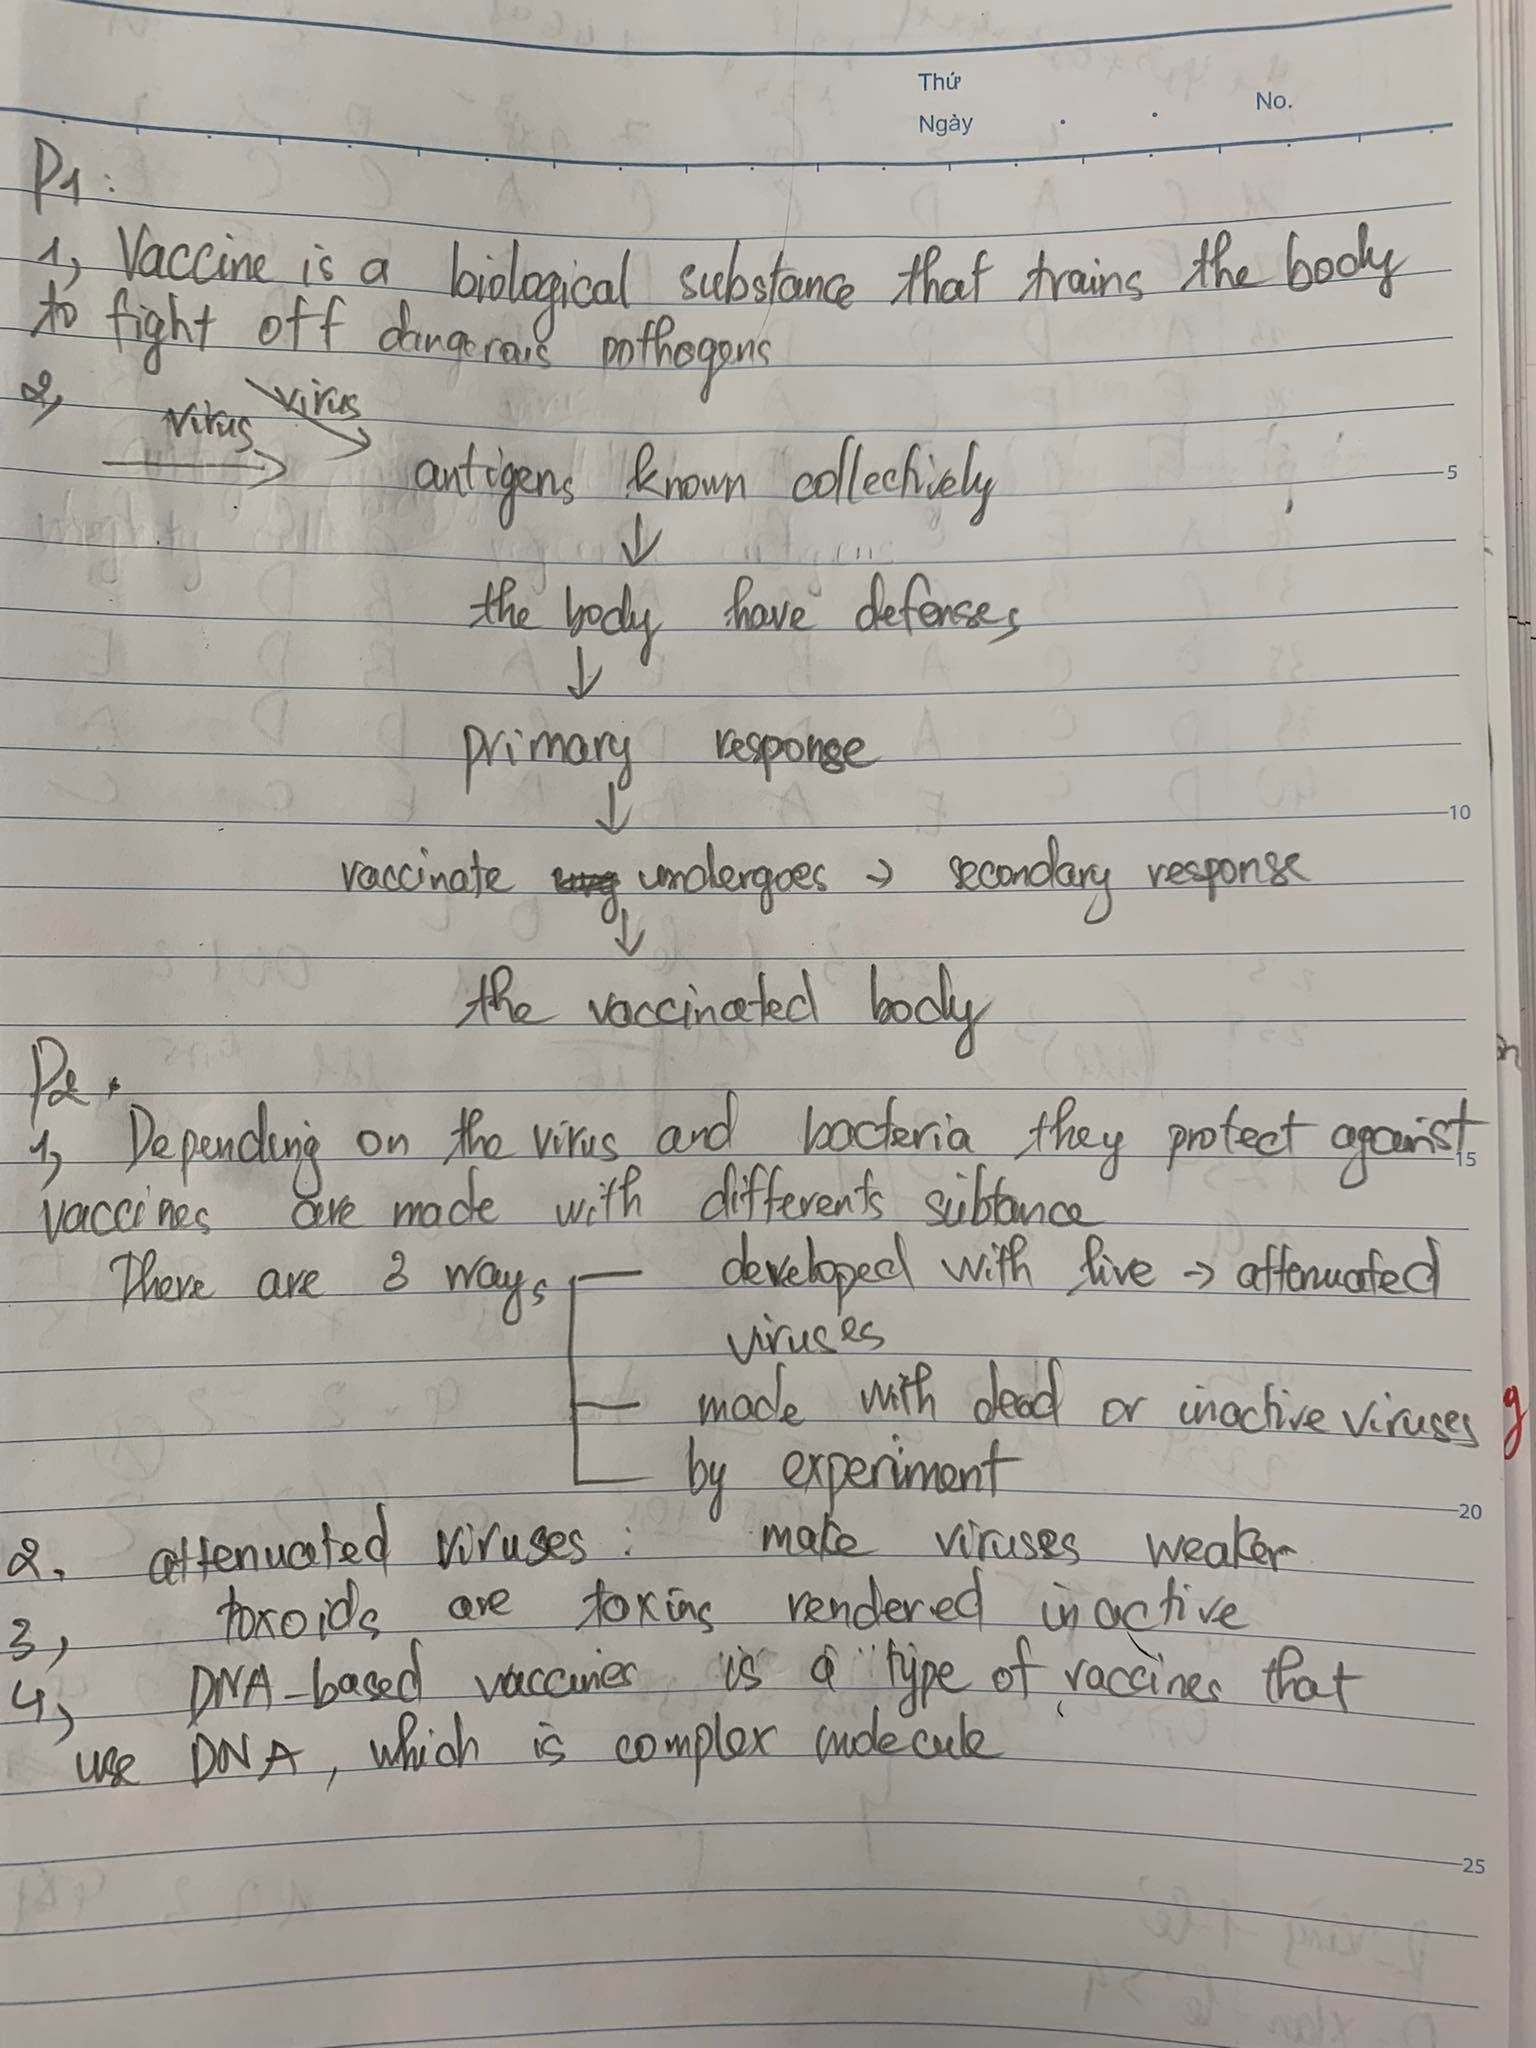 Thứ
Ngày
No.
P1:
1, Vaccine is a biological substance that trains the body
to fight off dangerous pathogens
2,
virus
virus
antigens known collectively
5
↓
the body have defenses
↓
primary response
↓
10
vaccinate undergoes → secondary response
↓
the vaccinated body
P2.
1, Depending on the virus and bacteria they protect against
15
vaccines are made with differents subtance
There are 3 ways
developed with live → attenuated
viruses
made with dead or inactive viruses
g
by experiment
20
2. attenuated viruses: make viruses weaker
3, toxoids are toxins rendered inactive
4, DNA-based vaccines is a type of vaccines that
use DNA, which is complex molecule
25